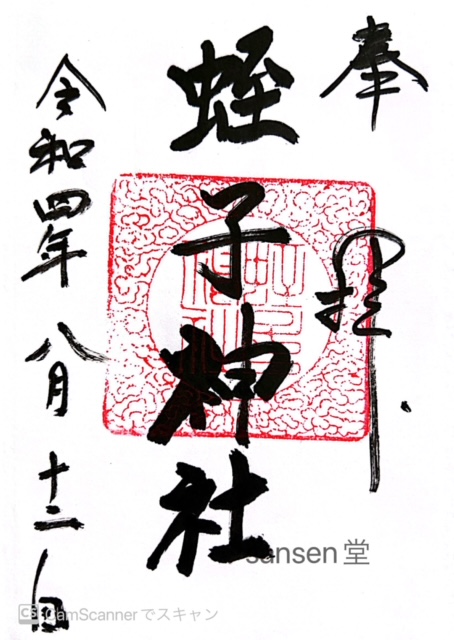 奉拝
蛭子神社
令和四年八月十二日
sansen堂
CS CamScannerでスキャン